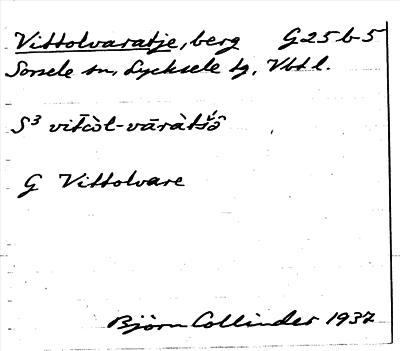 Vittolvaratje, berg G 25 b 5
Sorsele sn, Lycksele tg, Vbtl.
S³ vitcòl-vāràtšô
G Vittolvare
Björn Collinder 1937